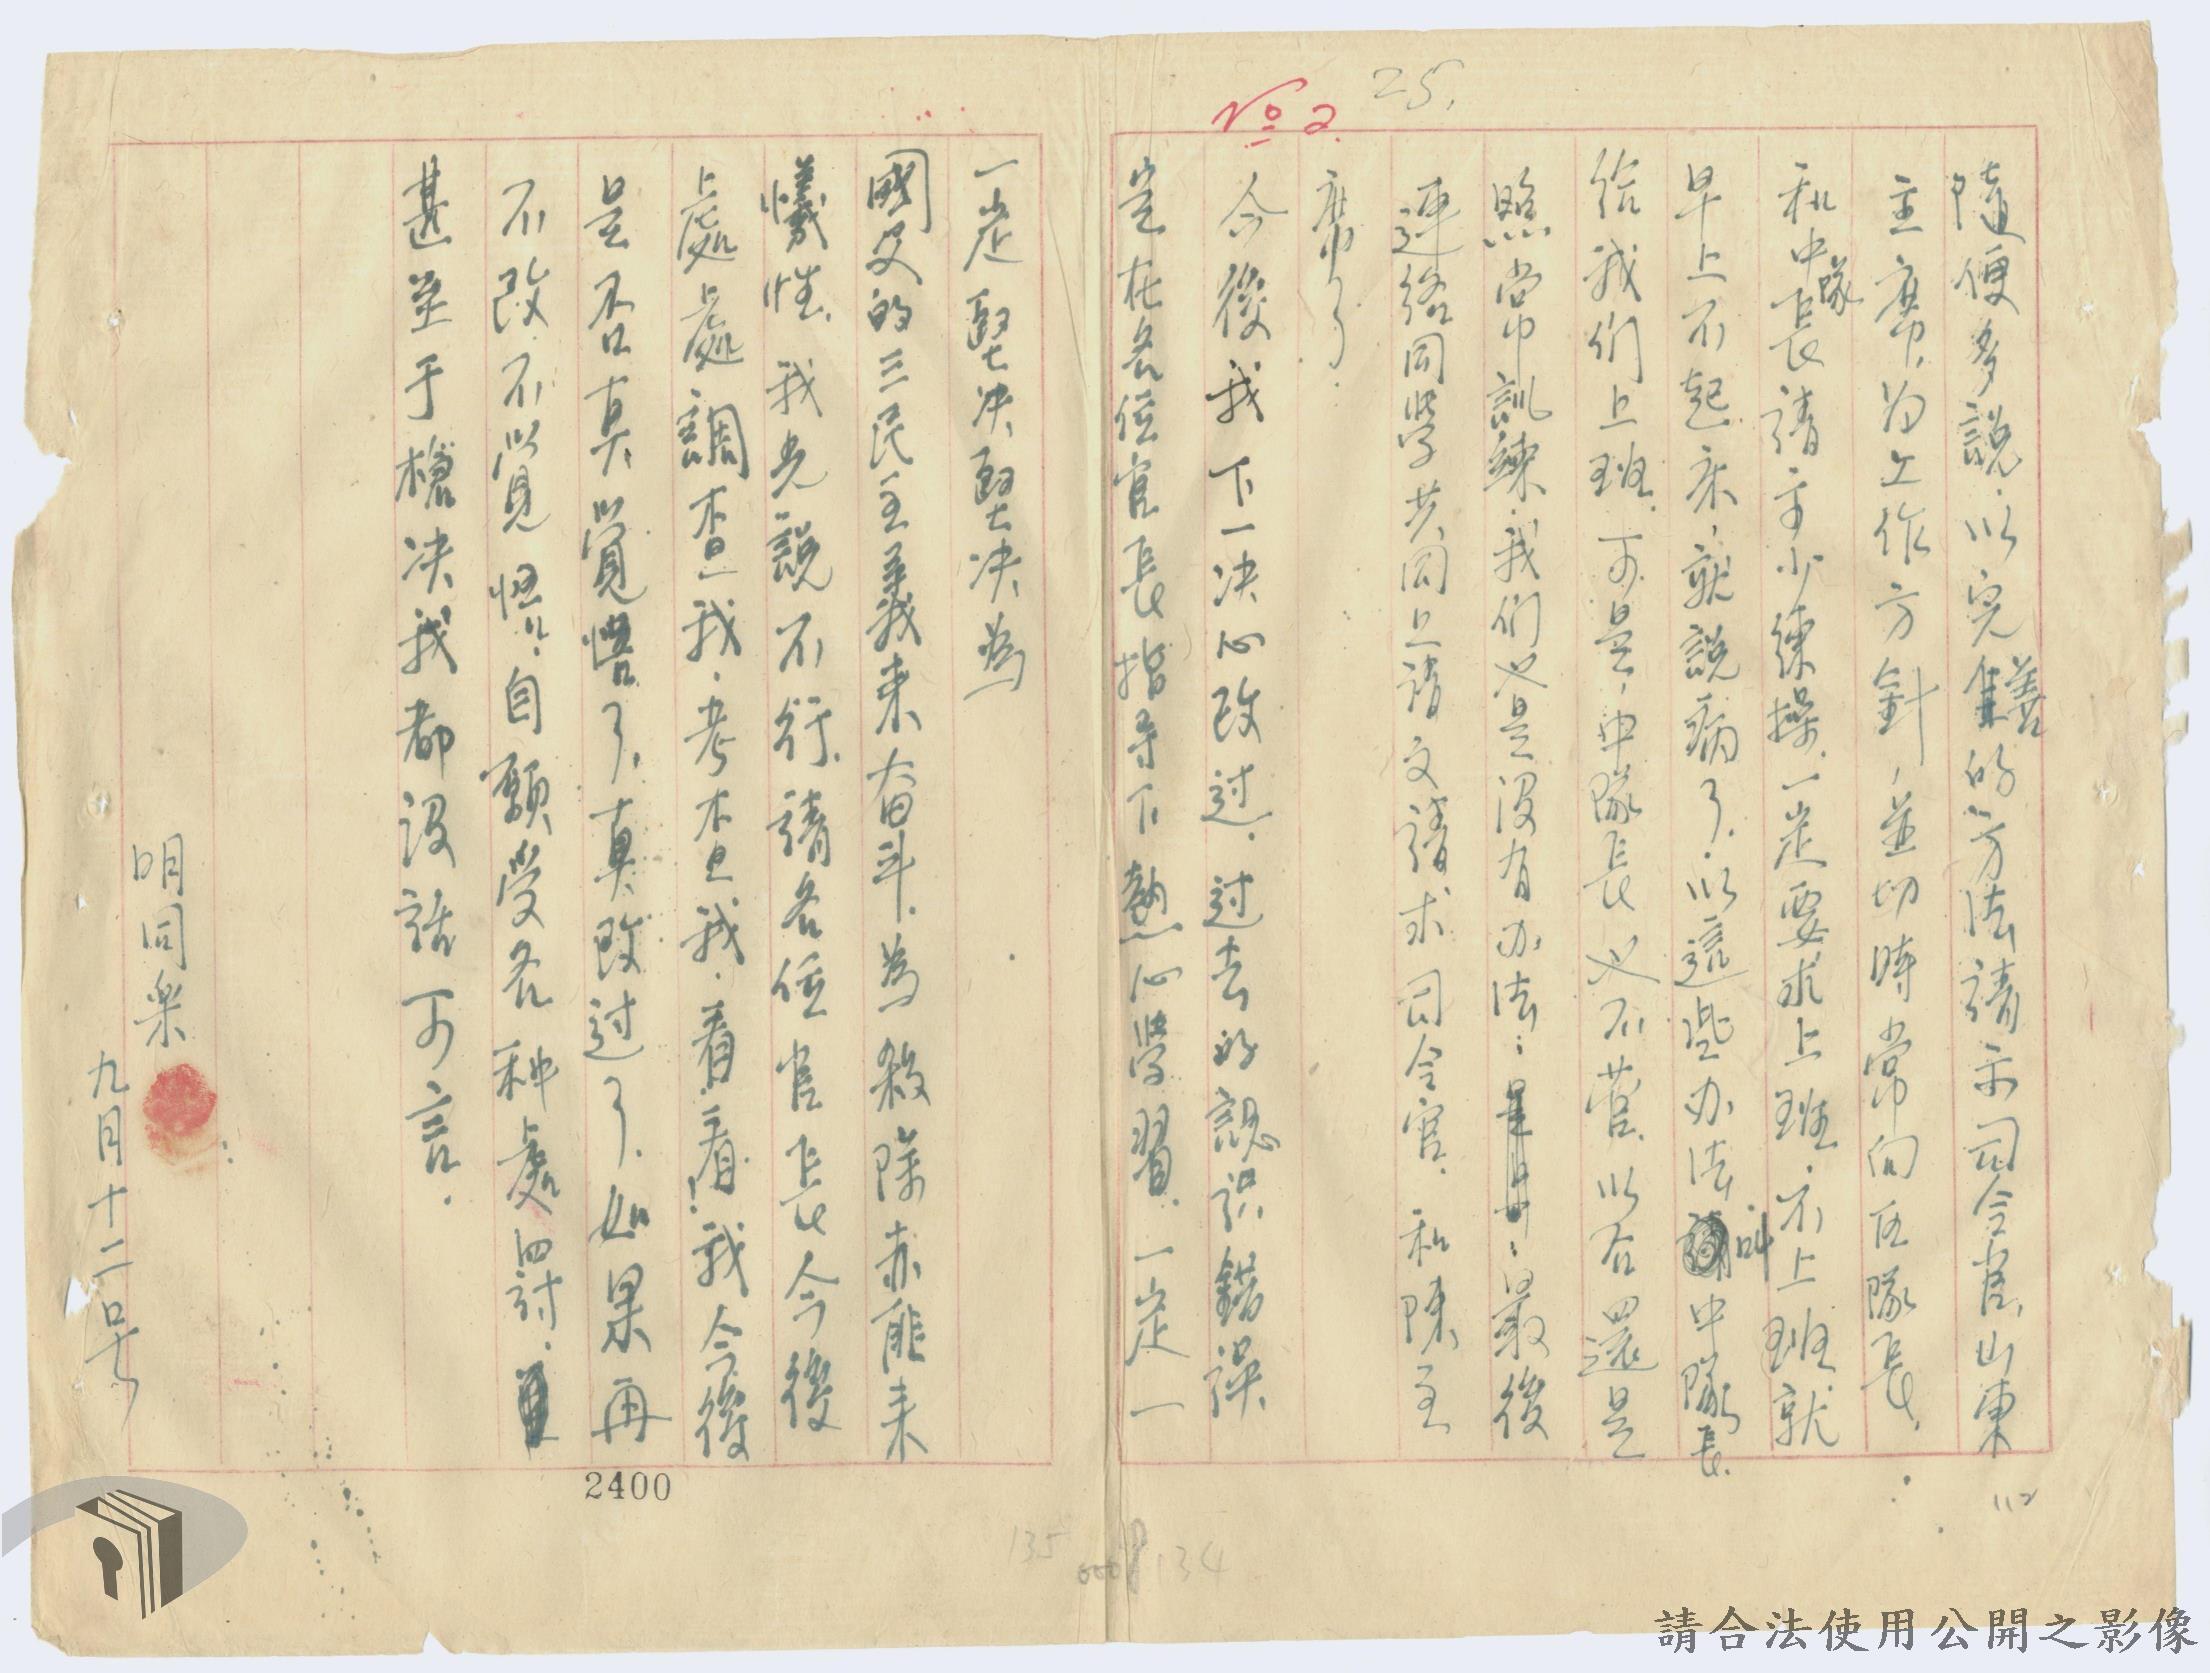 25.
No 2
隨便多説.以完善的方法請示司令官,山東
主席,为工作方針,並切時常向区隊長.
和中隊長請求少練操.一定要求上班.不上班就
早上不起床,就説病了.以這些办法.叫中隊長.
给我们上班.可是,中隊長也不管.以右還是
照常訓練.我们也是没有办法:最後
連络同学共同上請文請求司令官.和陳主
席了.
今後我下一决心改过.过去的認识錯誤
定在各位官長指导下.熱心学習.一定一
一定堅决堅决為
國父的三民主義来奋斗.為殺除赤匪来
犧性.我光説不行.請各位官長今後
處處調查我.考查我.看看!我今後
是否真覚悟了.真改过了.如果再
不改.不覚悟.自願受各种處罰.
甚至于槍决我都没話可言.
明同楽
九月十二号
2400
112
135
134
請合法使用公開之影像